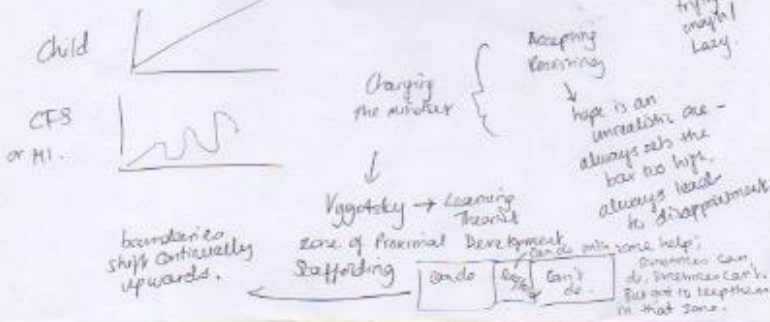 trying
Lazy.
Child
CFS
or MI.
Changing
the mindset
Accepting
hope is an
unrealistic one -
always sets the
bar too high,
always leads
to disappointment
Vygotsky → Learning
Theorist
Zone of Proximal Development
Scaffolding
boundaries
shift continually
upwards.
Can do with some help;
Can do
Can't
do.
Sometimes can
do, sometimes can't.
But got to keep them
in that zone.